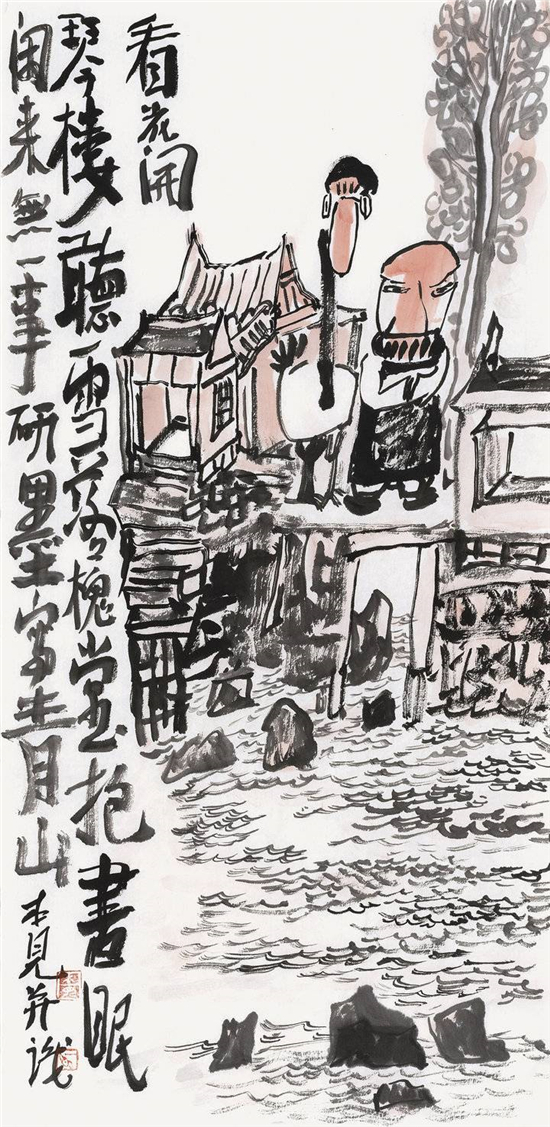 看花開
琴楼聽雪落槐堂抱書眠
閑来無一事研墨寫青山 見并識